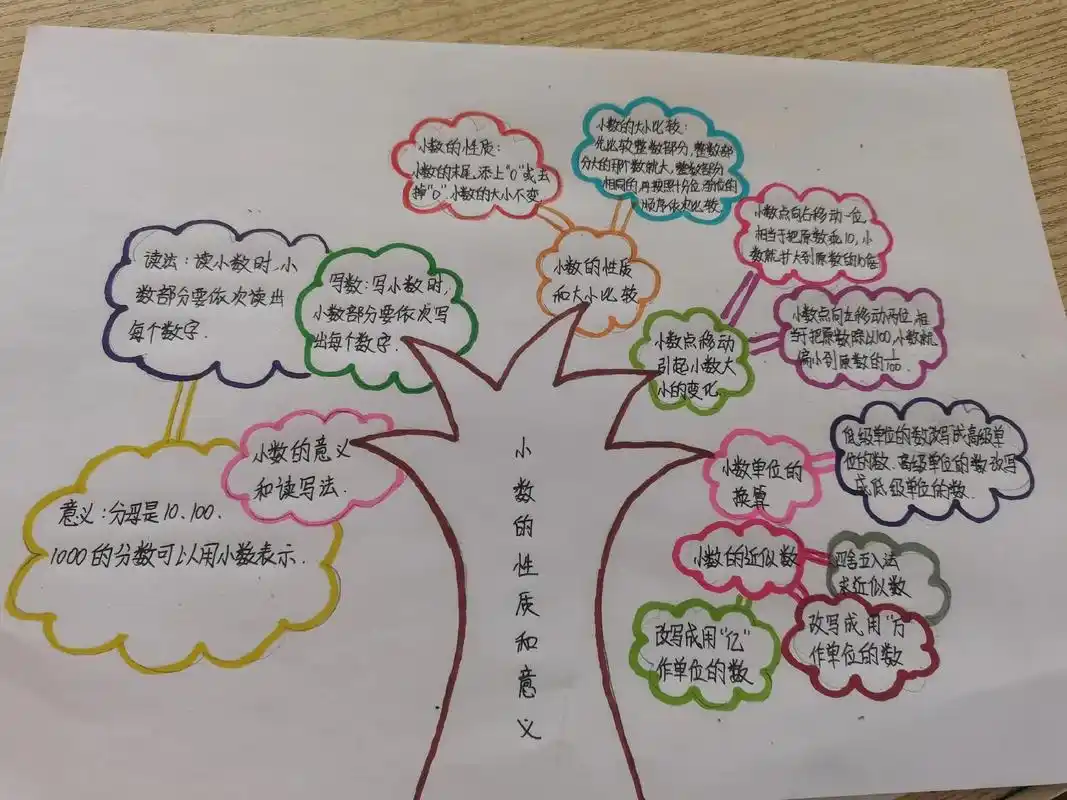 小数的性质和意义
小数的意义
和读写法.
读法:读小数时,小
数部分要依次读出
每个数字.
写数:写小数时,
小数部分要依次写
出每个数字.
意义:分母是10.100.
1000的分数可以用小数表示.
小数的性质
和大小比较
小数的性质:
小数的末尾,添上“0”或去
掉“0”.小数的大小不变.
小数的大小比较:
先比较整数部分,整数部
分大的那个数就大,整数部分
相同的,再按照十分位.
顺序依次比较.
小数点移动
引起小数大
小的变化.
小数点向右移动一位
相当于把原数乘10,小
数就扩大到原数的10倍
小数点向左移动两位,相
当于把原数除以100,小数就
缩小到原数的1/100.
小数单位的
换算
低级单位的数改写成高级单
位的数.高级单位的数改写
成低级单位的数.
小数的近似数
四舍五入法
求近似数
改写成用“亿”
作单位的数
改写成用“万”
作单位的数